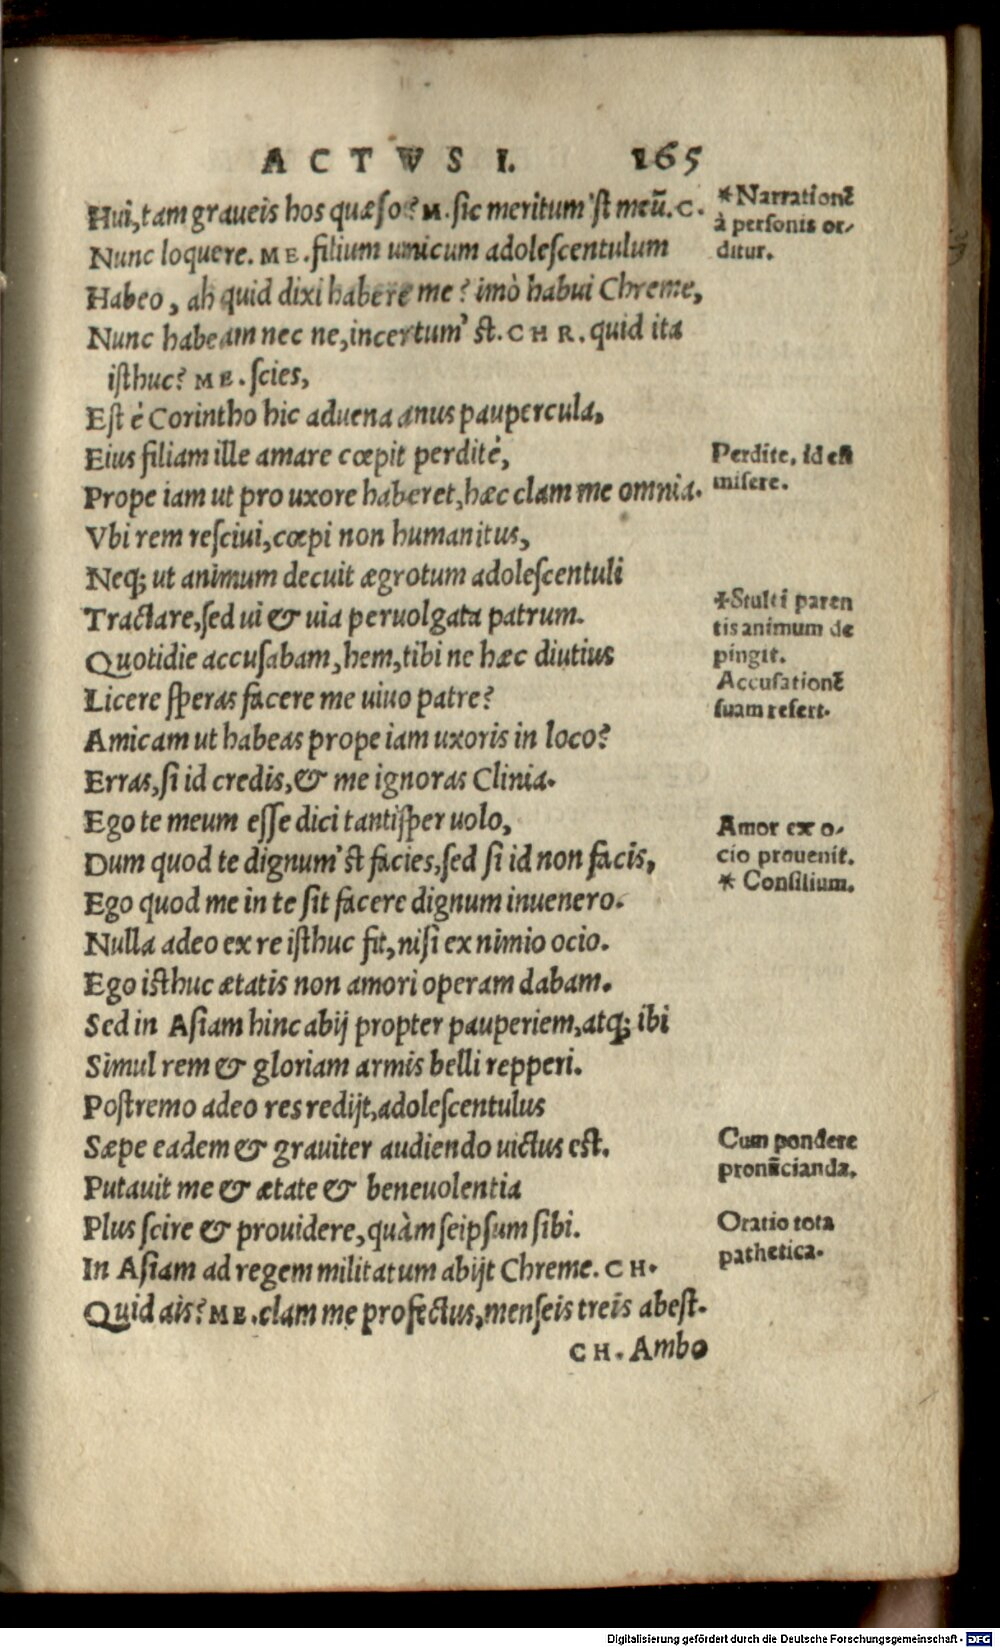 ACTVS I. 165
Hui, tam graueis hos quæso? M. sic meritum'st meū. C.
Nunc loquere. ME. filium unicum adolescentulum
Habeo, ah quid dixi habere me? imò habui Chreme,
Nunc habeam nec ne, incertum'st. CHR. quid ita
isthuc? ME. scies,
Est è Corintho hic aduena anus paupercula,
Eius filiam ille amare cœpit perditè,
Prope iam ut pro uxore haberet, hæc clam me omnia.
Vbi rem resciui, cœpi non humanitus,
Neq; ut animum decuit ægrotum adolescentuli
Tractare, sed ui & uia peruolgata patrum.
Quotidie accusabam, hem, tibi ne hæc diutius
Licere speras facere me uiuo patre?
Amicam ut habeas prope iam uxoris in loco?
Erras, si id credis, & me ignoras Clinia.
Ego te meum esse dici tantisper uolo,
Dum quod te dignum'st facies, sed si id non facis,
Ego quod me in te sit facere dignum inuenero.
Nulla adeo ex re isthuc fit, nisi ex nimio ocio.
Ego isthuc ætatis non amori operam dabam.
Sed in Asiam hinc abij propter pauperiem, atq; ibi
Simul rem & gloriam armis belli repperi.
Postremo adeo res redijt, adolescentulus
Sæpe eadem & grauiter audiendo uictus est.
Putauit me & ætate & beneuolentia
Plus scire & prouidere, quàm seipsum sibi.
In Asiam ad regem militatum abijt Chreme. CH.
Quid ais? ME. clam me profectus, menseis treis abest.
CH. Ambo
*Narrationē
à personis or-
ditur.
Perdite, id est
misere.
✢Stulti paren
tis animum de
pingit.
Accusationē
suam refert.
Amor ex o-
cio prouenit.
* Consilium.
Cum pondere
pronūcianda.
Oratio tota
pathetica.
Digitalisierung gefördert durch die Deutsche Forschungsgemeinschaft - DFG